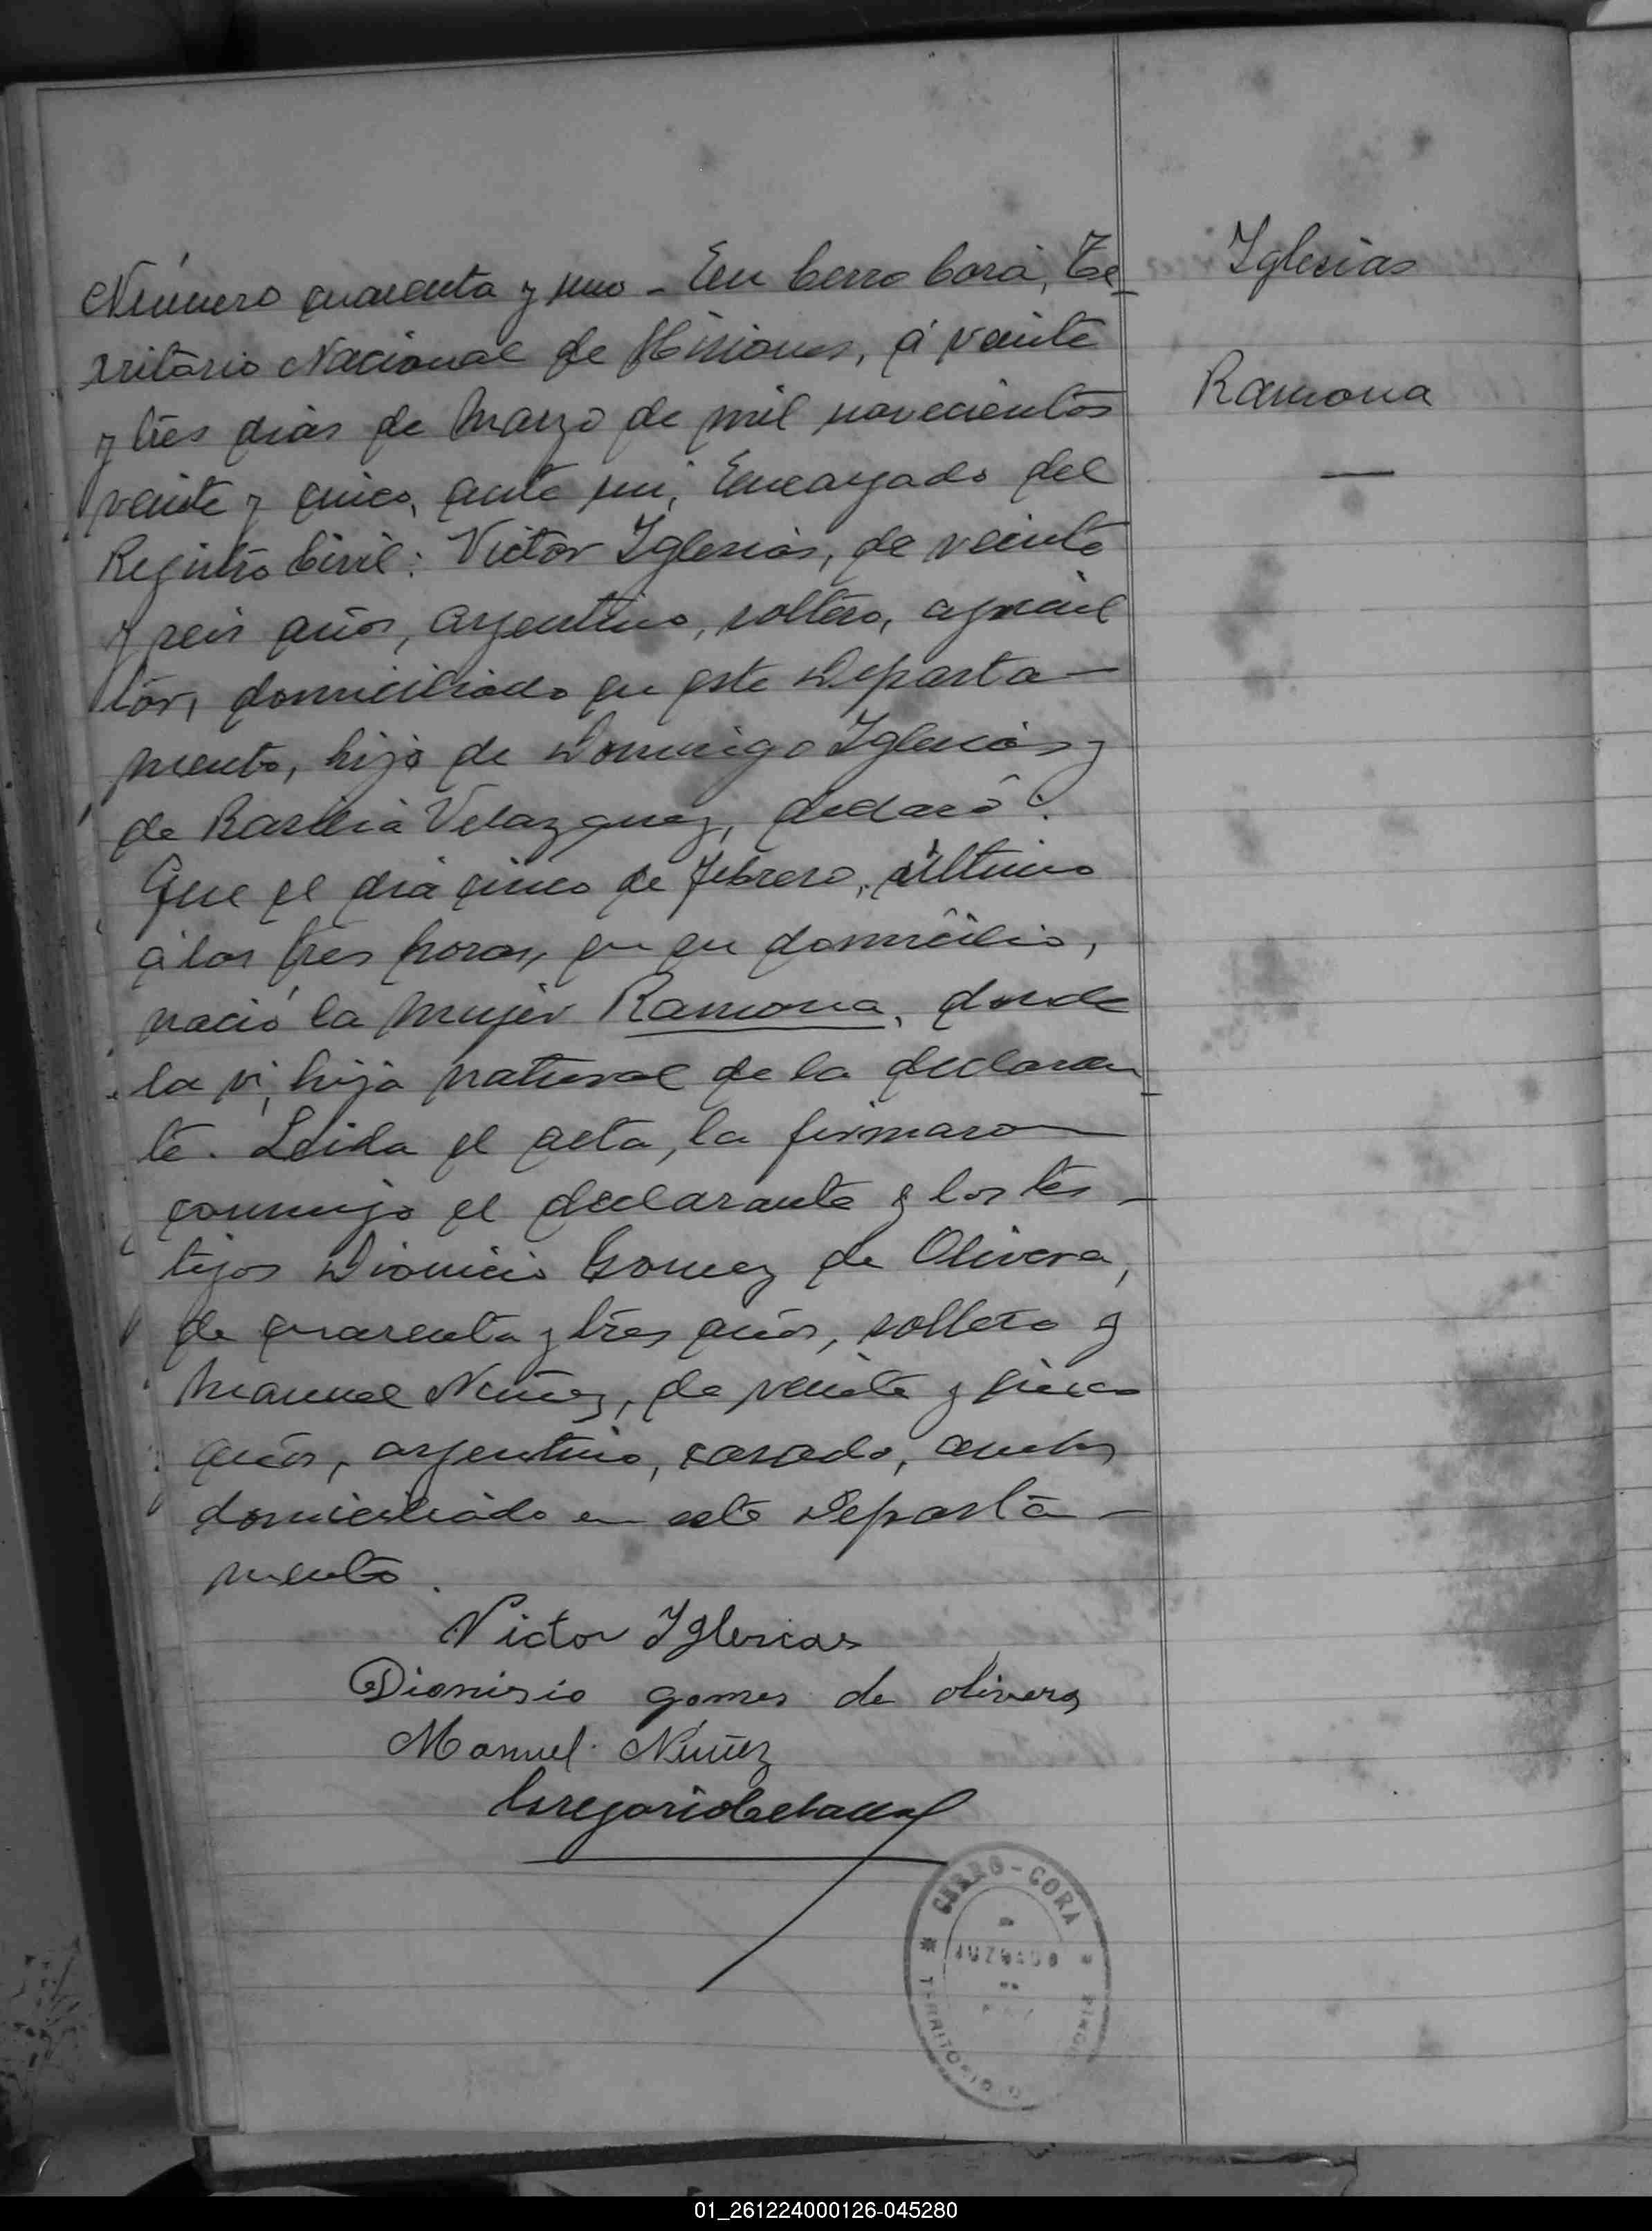 Número cuarenta y uno - En Cerro Corá, Te-
rritorio Nacional de Misiones, á veinte
y tres dias de Marzo de mil novecientos
veinte y cinco, ante mi, Encargado del
Registro Civil: Victor Iglesias, de veinte
y seis años, argentino, soltero, agricul
tor, domiciliado en este Departa-
mento, hijo de Domingo Iglesias y
de Basilia Velazquez, declaró:
Que el dia cinco de febrero, último
á las tres horas, en su domicilio,
nació la mujer Ramona, donde
la vi, hija natural de la declaran
te. Leida el acta, la firmaron
conmigo el declarante y los tes-
tigos Dionicio Gomez de Olivera,
de cuarenta y tres años, soltero y
Manuel Nuñez, de veinte y cinco
años, argentino, casado, ambos
domiciliado en este Departa-
mento.
Victor Iglesias
Dionisio gomes de olivera
Manuel Núñez
Gregorio
Iglesias
Ramona
CERRO-CORA
JUZGADO
TERRITORIO
01_261224000126-045280